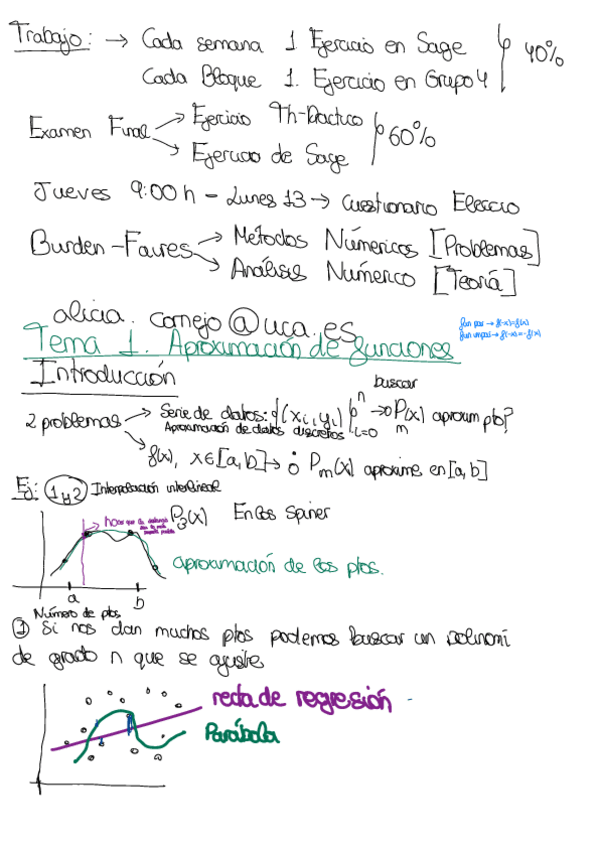 Trabajo: → Cada semana 1 Ejercicio en Sage
Cada Bloque 1. Ejercicio en Grupo 4
40%
Examen Final → Ejercicio Th-Practico
→ Ejercicio de Sage
60%
Jueves 9:00 h - Lunes 13 → Cuestionario Eleccio
Burden-Faires → Metodos Númericos [Problemas]
→ Análisis Numérico [Teoría]
alicia.cornejo@uca.es
fun par → f(-x)=f(x)
fun impar → f(-x)=-f(x)
Tema 1. Aproximación de funciones
Introducción
buscar
2 problemas → Serie de datos: {(xi, yi)}ⁿi=0 → P(x) aproxim pto?
m
Aproximación de datos discretos
→ f(x), x∈[a,b] → ¿ Pm(x) aproxime en [a,b]
Ej: 1 y 2 Interpolación
P3(x) En los
aproximación de los ptos.
a b
Número de ptos
① Si nos dan muchos ptos podemos buscar un polinomi
de grado n que se ajuste
recta de regresión
Parábola